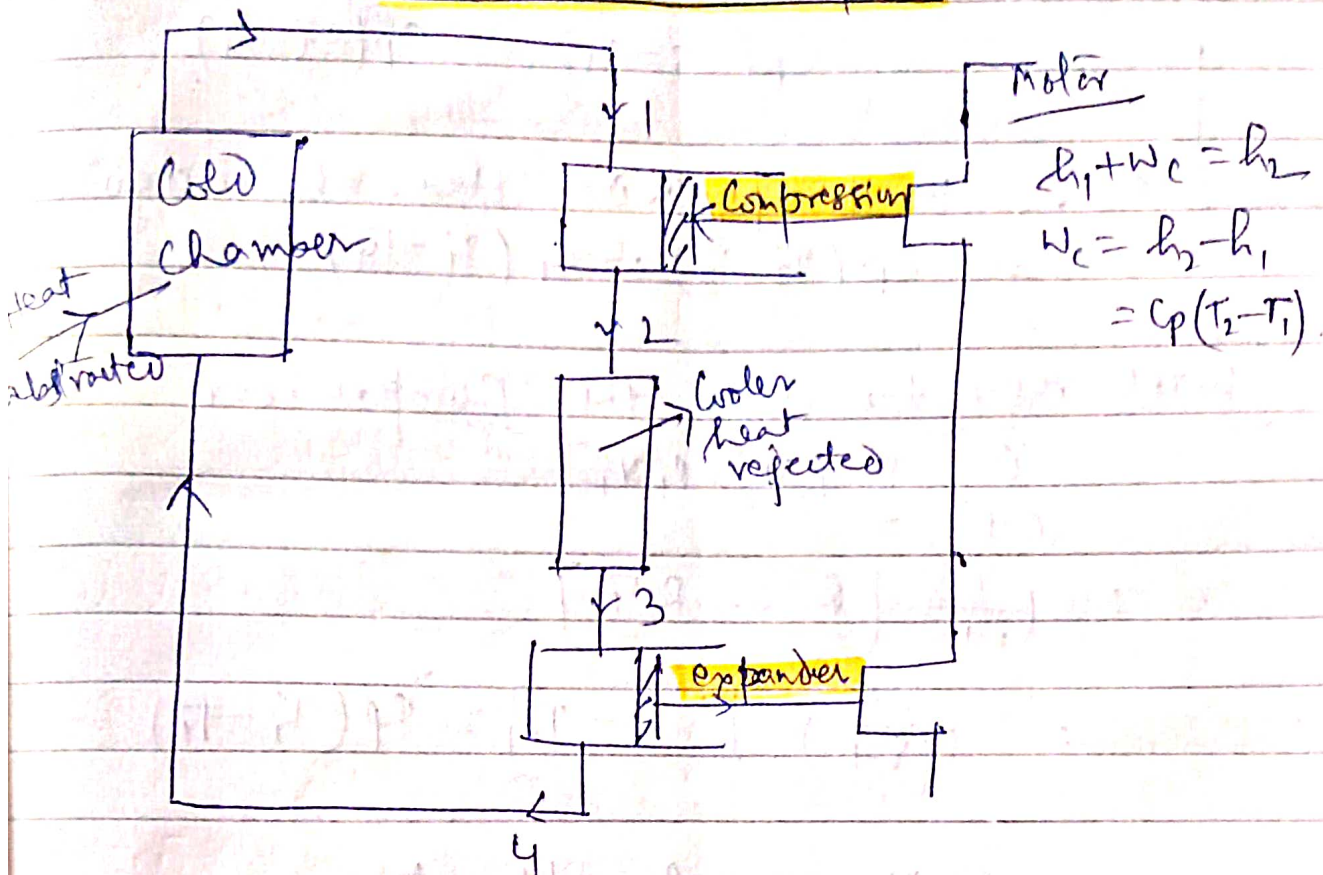 1
Motor
Cold
chamber
heat
abstracted
Compression
h₁+Wc = h₂
Wc = h₂-h₁
= Cp(T₂-T₁)
2
Cooler
heat
rejected
3
expander
4